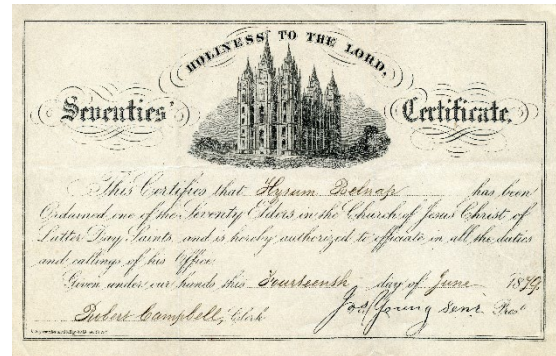 HOLINESS TO THE LORD.
Seventies' Certificate.
This Certifies that Hyrum Belnap has been
Ordained one of the Seventy Elders in the Church of Jesus Christ of
Latter Day Saints, and is hereby authorized to officiate in all the duties
and callings of his Office.
Given under our hands this Fourteenth day of June 1879.
Robert Campbell, Clerk Jos. Young Senr. Prest